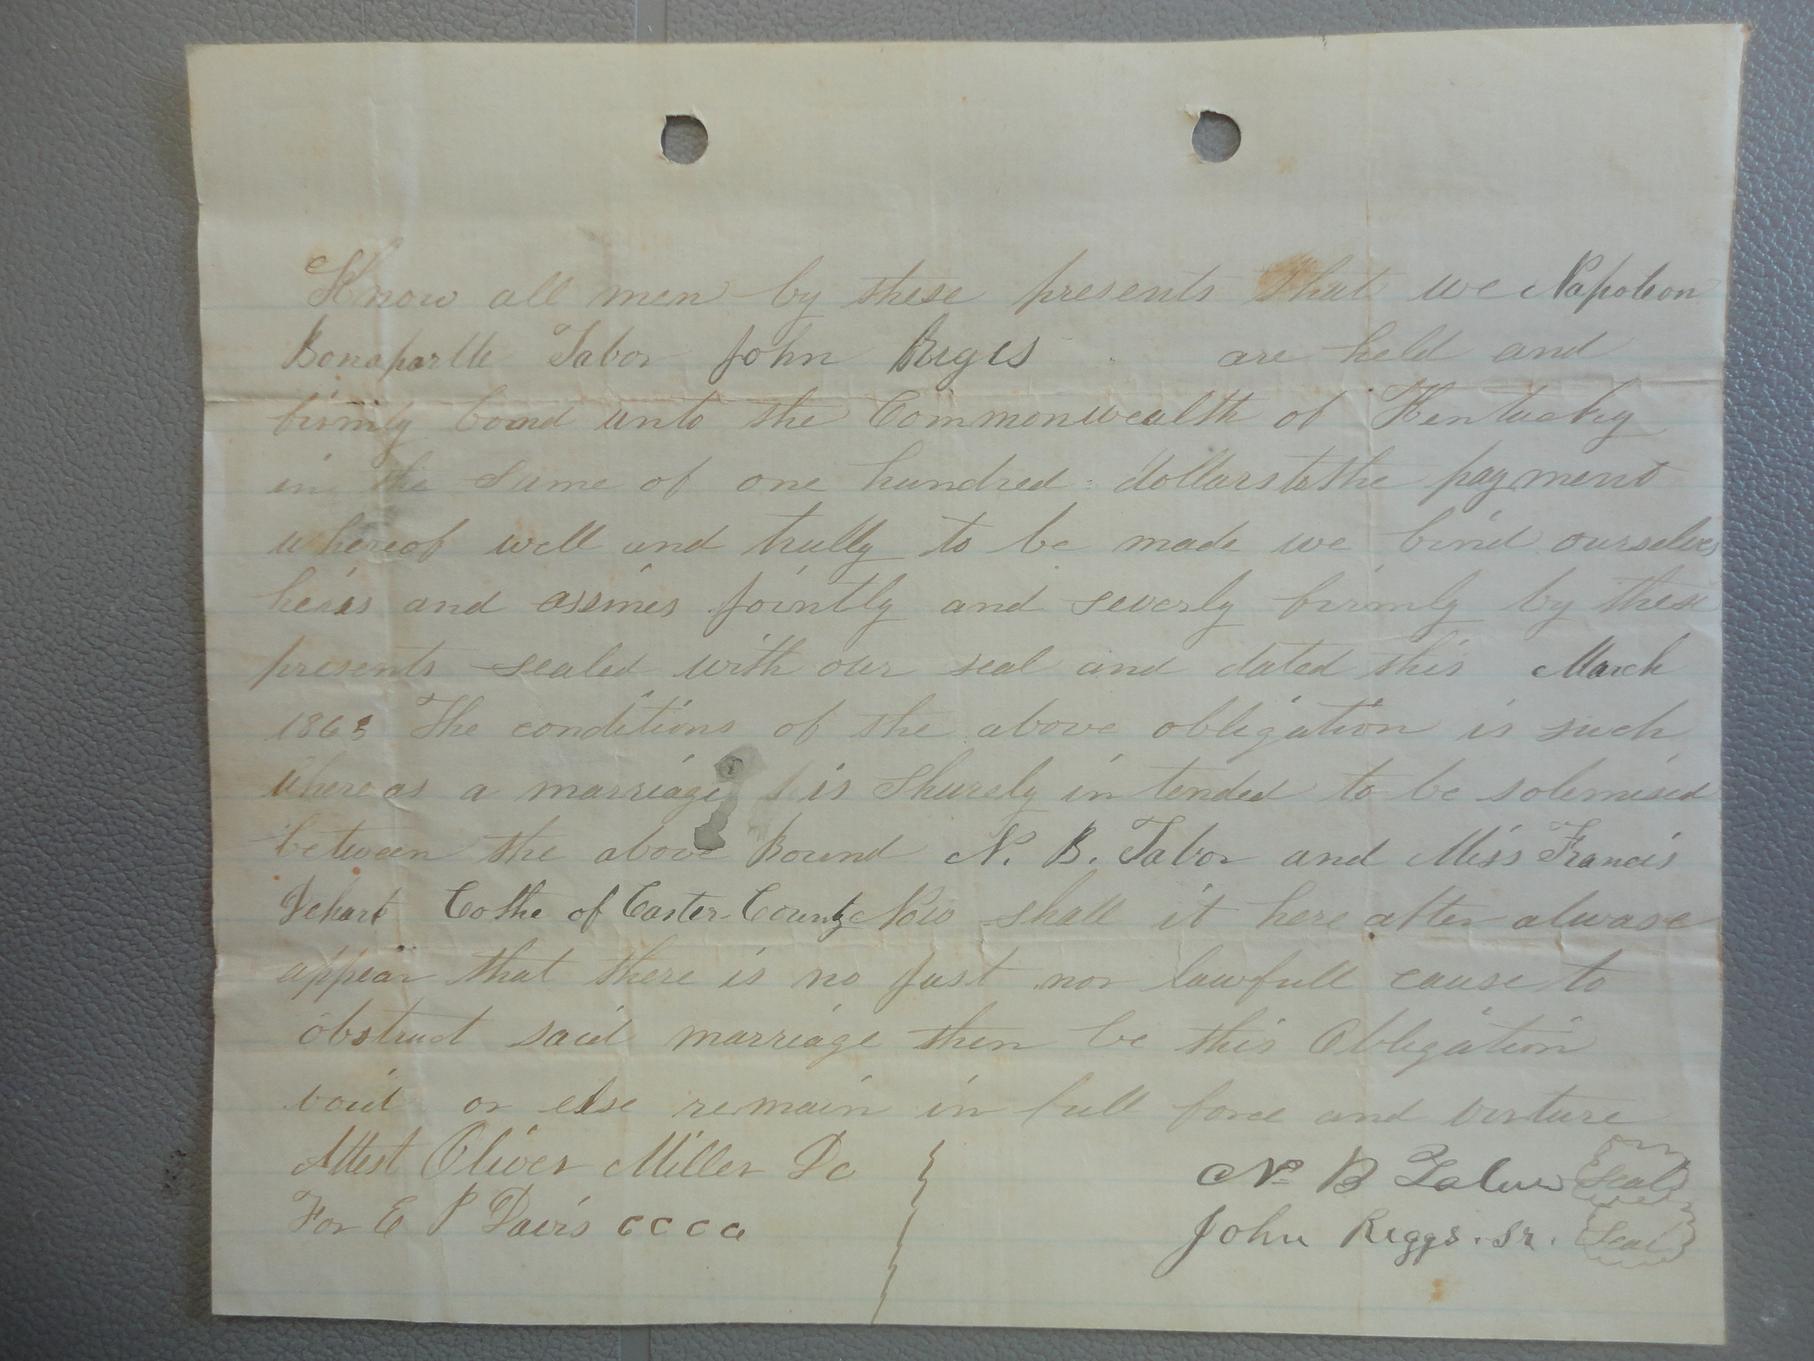 Know all men by these presents that we Napoleon
Bonapartte Tabor John Riggs are held and
firmly bound unto the Commonwealth of Kentucky
in the same of one hundred dollars to the payment
whereof well and trully to be made we bind ourselves
heirs and assines jointly and severly firmly by these
presents sealed with our seal and dated this March
1868 The conditions of the above obligation is such
whereas a marriage is shurely intended to be solemised
between the above Bound N. B. Tabor and Miss Francis
of Carter County Now shall it here after alwase
appear that there is no just nor lawfull cause to
obstruct said marriage then be this Obligation
void or else remain in full force and virture
Attest Oliver Miller Dc
For E P Davis C C C C
N. B Tabor Seal
John Riggs. sr. Seal